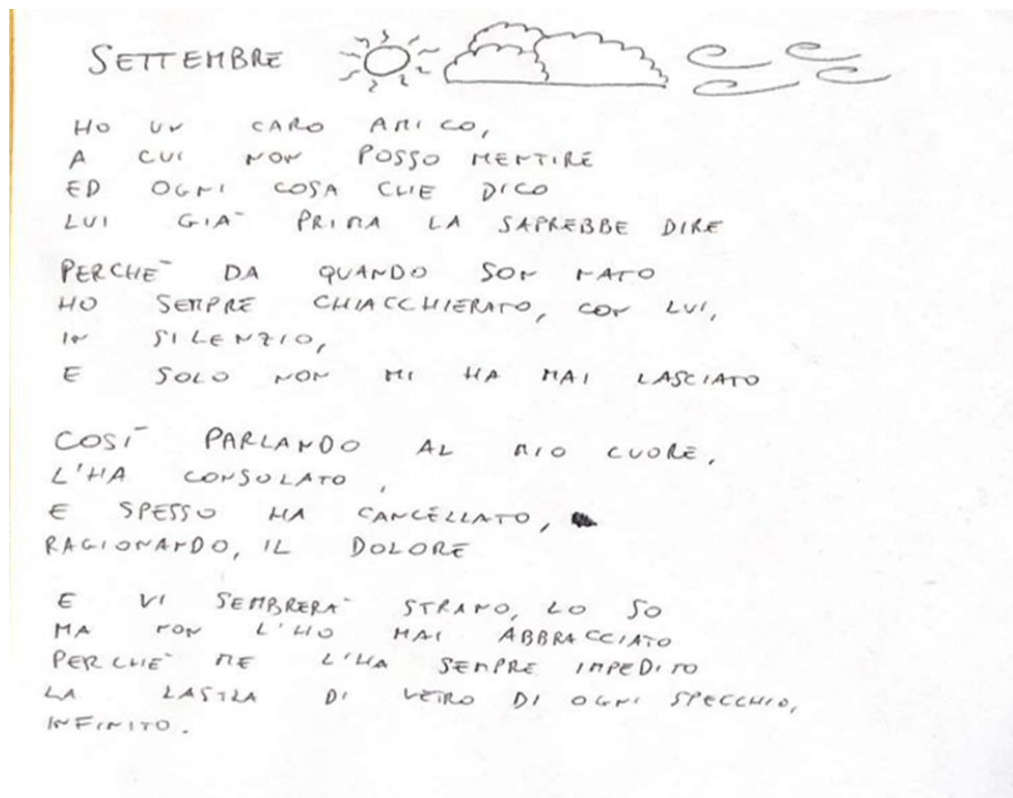 SETTEMBRE
HO UN CARO AMICO,
A CUI NON POSSO MENTIRE
ED OGNI COSA CHE DICO
LUI GIÀ PRIMA LA SAPREBBE DIRE
PERCHÈ DA QUANDO SON NATO
HO SEMPRE CHIACCHIERATO, CON LUI,
IN SILENZIO,
E SOLO NON MI HA MAI LASCIATO
COSÌ PARLANDO AL MIO CUORE,
L'HA CONSOLATO,
E SPESSO HA CANCELLATO,
RAGIONANDO, IL DOLORE
E VI SEMBRERÀ STRANO, LO SO
MA NON L'HO MAI ABBRACCIATO
PERCHÈ ME L'HA SEMPRE IMPEDITO
LA LASTRA DI VETRO DI OGNI SPECCHIO,
INFINITO.